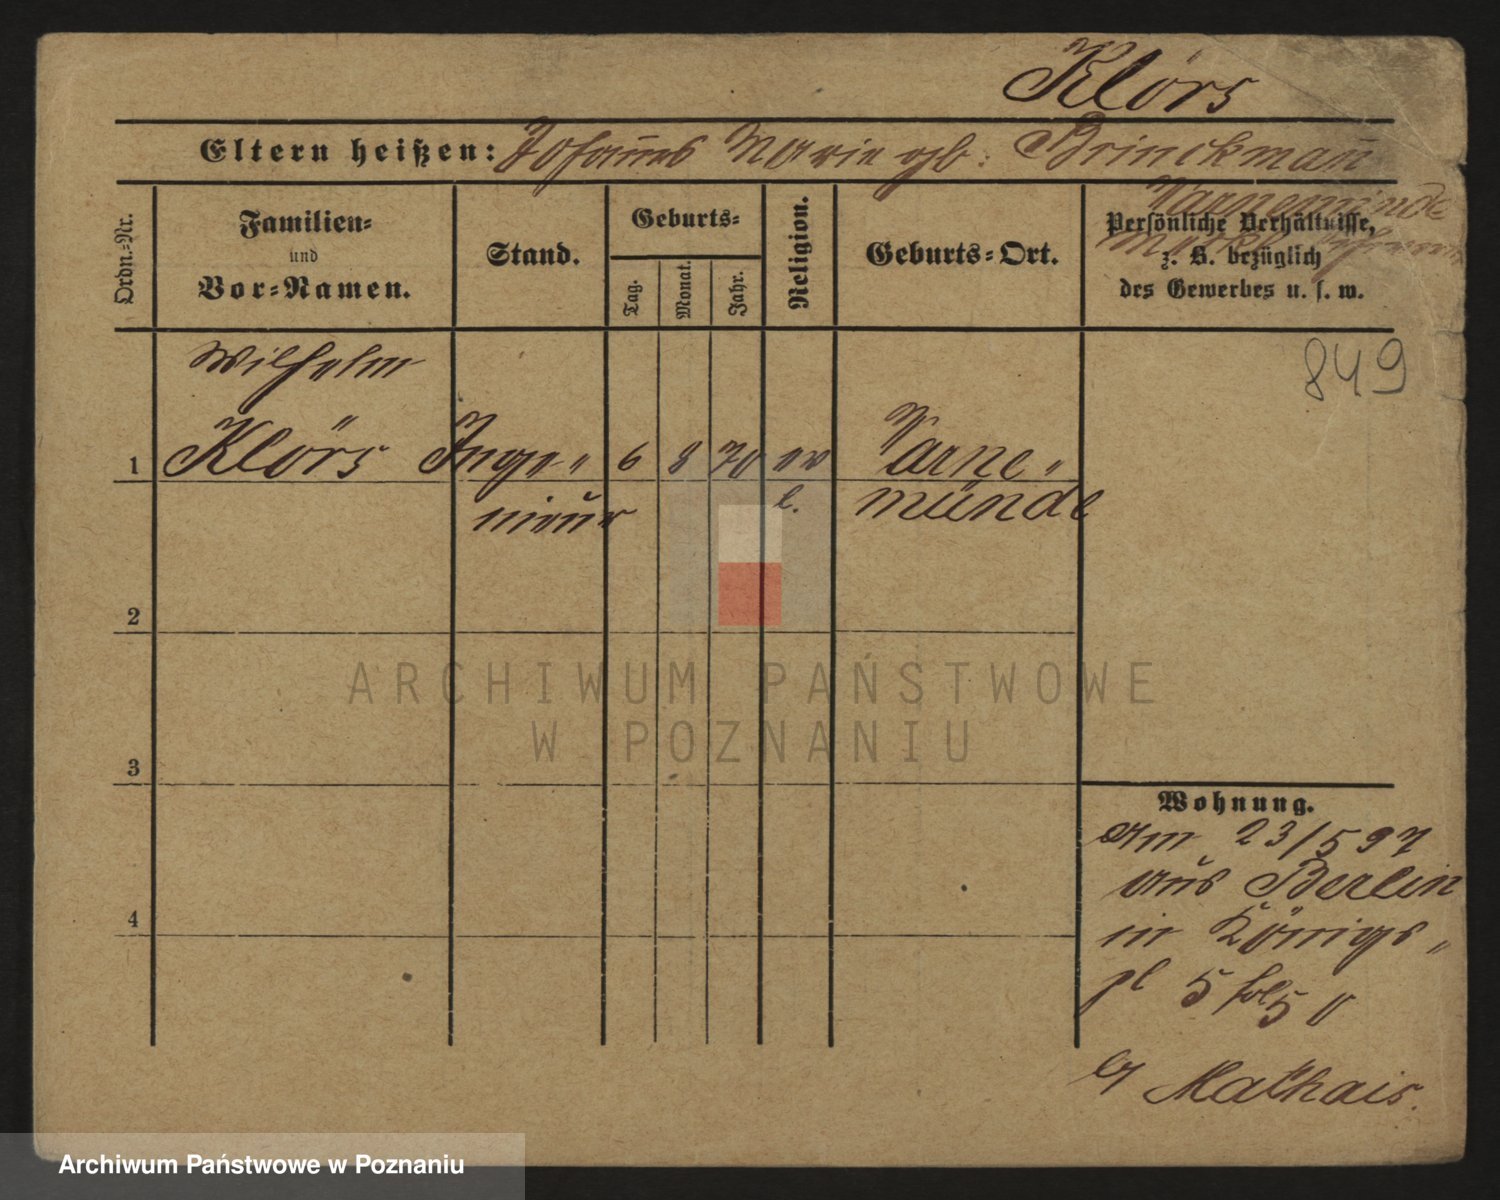 Klörs
Eltern heißen: Johannes Marie gb: Brinckmann
Warnemünde
Ordn.-Nr.
Familien-
und
Vor-Namen.
Stand.
Geburts-
Tag.
Monat.
Jahr.
Religion.
Geburts-Ort.
Persönliche Verhältnisse,
z. B. bezüglich
des Gewerbes u. s. w.
849
Wilhelm
1 Klörs Inge- 6 8 70 ev Warne-
nieur l. münde
2
3
4
ARCHIWUM PAŃSTWOWE
W POZNANIU
Wohnung.
Am 23/5 97
aus Berlin
in Königs-
pl 5 fol 50
b/ Mathais.
Archiwum Państwowe w Poznaniu